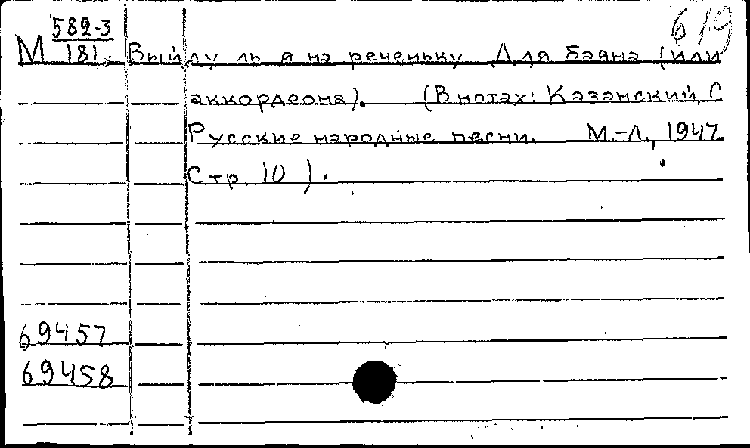 619
М 582-3
181. Выйду ль я на реченьку Для баяна (или
аккордеона). (В нотах: Казанский, С
Русские народные песни. М.-Л., 1947
Стр. 10).
69457
69458